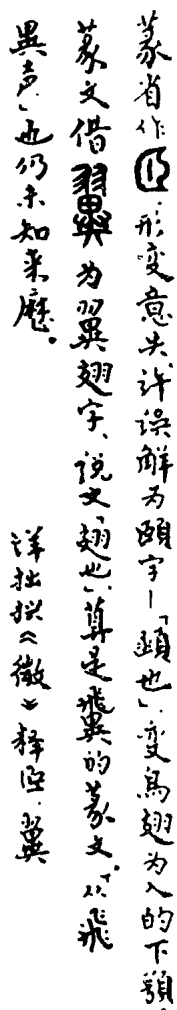 篆省作𦣞.形变意失.许误解为颐字—「顄也」,变鸟翅为人的下颚.
篆文借翼为翼翅字、说文「翅也」、算是飛異的篆文.「从飛
異声」也仍未知来歷。
详拙撰《徵》释𦣞.翼